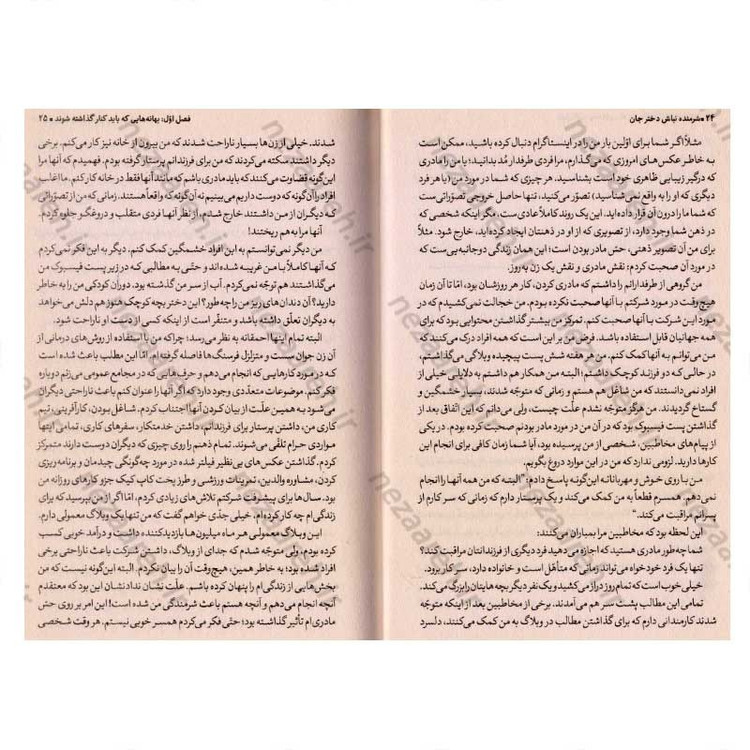 ۲۴ • شرمنده نباش دختر جان
مثلاً اگر شما برای اوّلین بار من را در اینستاگرام دنبال کرده باشید، ممکن است
به خاطر عکس‌های امروزی که می‌گذارم، مرا فردی طرفدار مُد بدانید؛ یا من را مادری
که درگیر زیبایی ظاهری خود است بشناسید. هر چیزی که شما در مورد من (یا هر فرد
دیگری که او را به واقع نمی‌شناسید) تصوّر می‌کنید، تنها حاصل خروجی تصوّراتی ست
که شما ما را درون آن قرار داده‌اید. این یک روند کاملاً عادی ست. مگر اینکه شخصی که
در ذهن شما وجود دارد، از تصویری که از او در ذهنتان ایجاد کرده‌اید، خارج شود. مثلاً
برای من آن تصویر ذهنی، حتّی مادر بودن است؛ این همان زندگی دوجانبه‌یی ست که
در مورد آن صحبت کردم؛ نقش مادری و نقش یک زن به‌روز.
من گروهی از طرفدارانم را داشتم که مادری کردن، کار هر روزشان بود، امّا تا آن زمان
هیچ‌وقت در مورد شرکتم با آنها صحبت نکرده بودم. من خجالت نمی‌کشیدم که در
مورد این شرکت با آنها صحبت کنم. تمرکز من بیشتر گذاشتن محتوایی بود که برای
همه جهانیان قابل استفاده باشد. فرض من بر این است که همه افراد درک می‌کنند که
من می‌توانم به آنها کمک کنم. من هر هفته شش پست پیچیده وبلاگی می‌گذاشتم،
در حالی که فرزند کوچک داشتم؛ البته من همکار هم داشتم. به دلایلی خیلی از
افراد نمی‌دانستند که من شاغل هم هستم و زمانی که متوجّه شدند، بسیار خشمگین و
گستاخ گردیدند. من هرگز متوجّه نشدم علّت چیست، ولی می‌دانم که این اتّفاق بعد از
گذاشتن پست فیسبوک بود که در آن من به سؤالات مخاطبینم پاسخ می‌دادم. در یکی
از پیام‌های مخاطبین، شخصی از من پرسیده بود، آیا شما زمان کافی برای انجام این
کارها دارید. لزومی ندارد که من در این موارد دروغ بگویم.
من با روی خوش و مهربانانه این‌گونه پاسخ دادم: "البته که من همه آنها را انجام
نمی‌دهم. همسرم قطعاً به من کمک می‌کند و یک پرستار دارم که زمانی که سر کارم از
پسرانم مراقبت می‌کند."
این لحظه بود که مخاطبین مرا بمباران می‌کنند:
شما چه‌طور مادری هستید که اجازه می‌دهید فرد دیگری از فرزندانتان مراقبت کند؟
تنها یک فرد خودخواه می‌تواند زمانی که متأهل است و خانواده دارد، سر کار برود.
خیلی خوب است که تمام روز دراز می‌کشید و یک نفر دیگر بچه‌هایتان را بزرگ می‌کند.
تمامی این مطالب پشت سر هم می‌آمدند. برخی از مخاطبین بعد از اینکه متوجّه
شدند کارمندانی دارم که برای گذاشتن مطالب در وبلاگ به من کمک می‌کنند، دلسرد
فصل اوّل: بهانه‌هایی که باید کنار گذاشته شوند • ۲۵
شدند. خیلی از زن‌ها بسیار ناراحت شدند که من بیرون از خانه نیز کار می‌کنم. برخی
دیگر داشتند سکته می‌کردند که من برای فرزندانم پرستار گرفته بودم. فهمیدم که آنها مرا
این‌گونه قضاوت می‌کنند که باید مادری باشم که مانند آنها فقط در خانه کار کنم. ما اغلب
افراد را آن‌گونه که دوست داریم می‌بینیم نه آن‌گونه که واقعاً هستند. زمانی که من از تصوّراتی
که دیگران از من داشتند خارج شدم، از نظر آنها فردی متقلب و دروغگو جلوه کردم.
آنها مرا به هم ریختند!
من دیگر نمی‌توانستم به این افراد خشمگین کمک کنم. دیگر به این فکر نمی‌کردم
که آنها کاملاً با من غریبه شده‌اند و حتّی به مطالبی که در زیر پست فیسبوک من
می‌گذاشتند هم توجّه نمی‌کردم. آب از سر من گذشته بود. دوران کودکی من را به خاطر
دارید؟ آن دندان‌های ریز من را چه‌طور؟ این دختر بچه کوچک هنوز هم دلش می‌خواهد
به دیگران تعلّق داشته باشد و متنفّر است از اینکه کسی از دست او ناراحت شود.
البته تمام اینها احمقانه به نظر می‌رسد؛ چراکه من با استفاده از روش‌های درمانی از
آن زن جوان سست و متزلزل فرسنگ‌ها فاصله گرفته‌ام. امّا این مطلب باعث شده است
که در مورد کارهایی که انجام می‌دهم و حرف‌هایی که در مجامع عمومی می‌زنم دوباره
فکر کنم. موضوعات متعدّدی وجود دارد که اگر آنها را عنوان کنم باعث ناراحتی دیگران
می‌شود به همین علّت از بیان کردن آنها اجتناب کردم. شاغل بودن، کارآفرینی، تیم
کاری من، داشتن پرستار برای فرزندانم، داشتن خدمتکار، سفرهای کاری، تمامی اینها
مواردی حرام تلقّی می‌شوند. تمام ذهنم را چیزی که دیگران دوست دارند متمرکز
کردم. گذاشتن عکس‌های بی‌نظیر فیلتر شده در مورد چه‌گونگی چیدمان و برنامه‌ریزی
کردن، مشاوره والدین، تمرینات ورزشی و طرز پخت کاپ کیک جزو کارهای روزانه من
بود. سال‌ها برای پیشرفت شرکتم تلاش‌های زیادی کردم. امّا اگر از من بپرسید که برای
زندگی‌ام چه کار کرده‌ام، خیلی جدّی خواهم گفت که من تنها یک وبلاگ معمولی دارم.
این وبلاگ معمولی هر ماه میلیون‌ها بازدیدکننده داشت و درآمد خوبی کسب
کرده بودم، ولی متوجّه شدم که جدای از وبلاگ، داشتن شرکت باعث ناراحتی برخی
افراد شده بود؛ به خاطر همین، هیچ وقت آن را بیان نکردم. البته این‌گونه نیست که من
بخش‌هایی از زندگی‌ام را پنهان کرده باشم. علّت نشان ندادنشان این بود که معتقدم
آنچه انجام می‌دهم و آنچه هستم باعث شرمندگی من شده است! این امر بر روی حتی
مادری‌ام تأثیر گذاشته بود؛ حتّی فکر می‌کردم همسر خوبی نیستم. هر وقت شخصی
nezaareh.ir